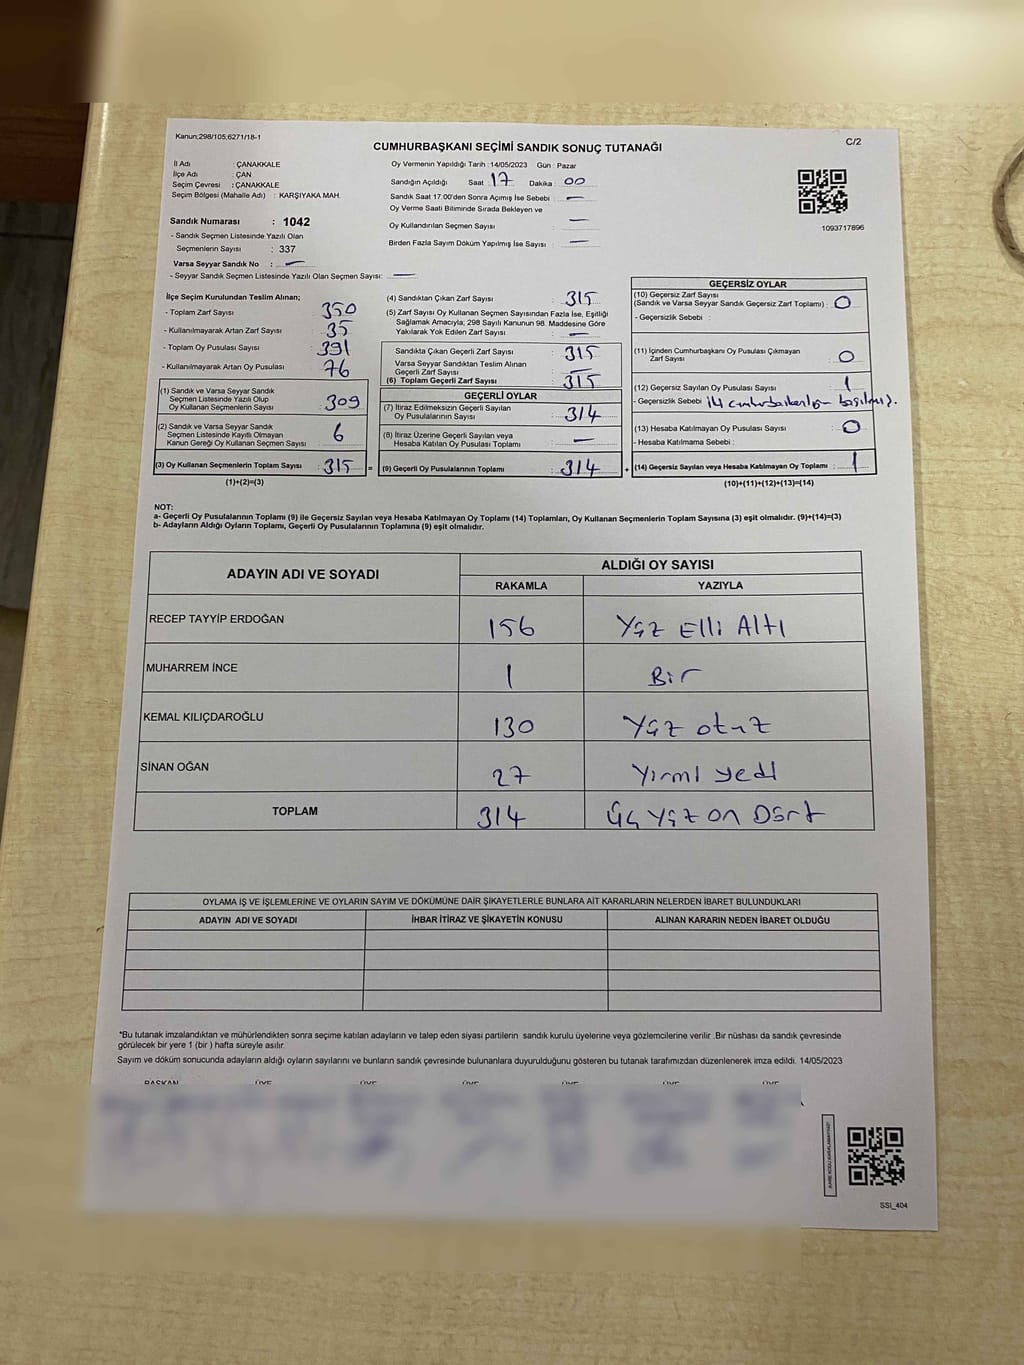 Kanun;298/105;6271/18-1
C/2
CUMHURBAŞKANI SEÇİMİ SANDIK SONUÇ TUTANAĞI
İl Adı : ÇANAKKALE
İlçe Adı : ÇAN
Seçim Çevresi : ÇANAKKALE
Seçim Bölgesi (Mahalle Adı) : KARŞIYAKA MAH.
Sandık Numarası : 1042
- Sandık Seçmen Listesinde Yazılı Olan
Seçmenlerin Sayısı : 337
Varsa Seyyar Sandık No : —
- Seyyar Sandık Seçmen Listesinde Yazılı Olan Seçmen Sayısı: —
Oy Vermenin Yapıldığı Tarih : 14/05/2023 Gün : Pazar
Sandığın Açıldığı Saat : 17 Dakika : 00
Sandık Saat 17.00'den Sonra Açımış İse Sebebi : —
Oy Verme Saati Bitiminde Sırada Bekleyen ve
Oy Kullandırılan Seçmen Sayısı : —
Birden Fazla Sayım Döküm Yapılmış İse Sayısı : —
1093717896
İlçe Seçim Kurulundan Teslim Alınan;
- Toplam Zarf Sayısı : 350
- Kullanılmayarak Artan Zarf Sayısı : 35
- Toplam Oy Pusulası Sayısı : 391
- Kullanılmayarak Artan Oy Pusulası : 76
(1) Sandık ve Varsa Seyyar Sandık
Seçmen Listesinde Yazılı Olup
Oy Kullanan Seçmenlerin Sayısı : 309
(2) Sandık ve Varsa Seyyar Sandık
Seçmen Listesinde Kayıtlı Olmayan
Kanun Gereği Oy Kullanan Seçmen Sayısı : 6
(3) Oy Kullanan Seçmenlerin Toplam Sayısı : 315 =
(1)+(2)=(3)
(4) Sandıktan Çıkan Zarf Sayısı : 315
(5) Zarf Sayısı Oy Kullanan Seçmen Sayısından Fazla İse, Eşitliği
Sağlamak Amacıyla; 298 Sayılı Kanunun 98. Maddesine Göre
Yakılarak Yok Edilen Zarf Sayısı : —
Sandıkta Çıkan Geçerli Zarf Sayısı : 315
Varsa Seyyar Sandıktan Teslim Alınan
Geçerli Zarf Sayısı : —
(6) Toplam Geçerli Zarf Sayısı : 315
GEÇERLİ OYLAR
(7) İtiraz Edilmeksizin Geçerli Sayılan
Oy Pusulalarının Sayısı : 314
(8) İtiraz Üzerine Geçerli Sayılan veya
Hesaba Katılan Oy Pusulası Toplamı : —
(9) Geçerli Oy Pusulalarının Toplamı : 314 +
GEÇERSİZ OYLAR
(10) Geçersiz Zarf Sayısı
(Sandık ve Varsa Seyyar Sandık Geçersiz Zarf Toplamı) : 0
- Geçersizlik Sebebi :
(11) İçinden Cumhurbaşkanı Oy Pusulası Çıkmayan
Zarf Sayısı : 0
(12) Geçersiz Sayılan Oy Pusulası Sayısı : 1
- Geçersizlik Sebebi
(13) Hesaba Katılmayan Oy Pusulası Sayısı : 0
- Hesaba Katılmama Sebebi :
(14) Geçersiz Sayılan veya Hesaba Katılmayan Oy Toplamı : 1
(10)+(11)+(12)+(13)=(14)
NOT:
a- Geçerli Oy Pusulalarının Toplamı (9) ile Geçersiz Sayılan veya Hesaba Katılmayan Oy Toplamı (14) Toplamları, Oy Kullanan Seçmenlerin Toplam Sayısına (3) eşit olmalıdır. (9)+(14)=(3)
b- Adayların Aldığı Oyların Toplamı, Geçerli Oy Pusulalarının Toplamına (9) eşit olmalıdır.
ADAYIN ADI VE SOYADI ALDIĞI OY SAYISI
RAKAMLA YAZIYLA
RECEP TAYYİP ERDOĞAN 156 Yüz Elli Altı
MUHARREM İNCE 1 Bir
KEMAL KILIÇDAROĞLU 130 Yüz otuz
SİNAN OĞAN 27 Yirmi yedi
TOPLAM 314 Üç Yüz on Dört
OYLAMA İŞ VE İŞLEMLERİNE VE OYLARIN SAYIM VE DÖKÜMÜNE DAİR ŞİKAYETLERLE BUNLARA AİT KARARLARIN NELERDEN İBARET BULUNDUKLARI
ADAYIN ADI VE SOYADI İHBAR İTİRAZ VE ŞİKAYETİN KONUSU ALINAN KARARIN NEDEN İBARET OLDUĞU
*Bu tutanak imzalandıktan ve mühürlendikten sonra seçime katılan adayların ve talep eden siyasi partilerin sandık kurulu üyelerine veya gözlemcilerine verilir. Bir nüshası da sandık çevresinde
görülecek bir yere 1 (bir) hafta süreyle asılır.
Sayım ve döküm sonucunda adayların aldığı oyların sayılarını ve bunların sandık çevresinde bulunanlara duyurulduğunu gösteren bu tutanak tarafımızdan düzenlenerek imza edildi. 14/05/2023
BAŞKAN ÜYE ÜYE ÜYE ÜYE ÜYE ÜYE
SSI_404